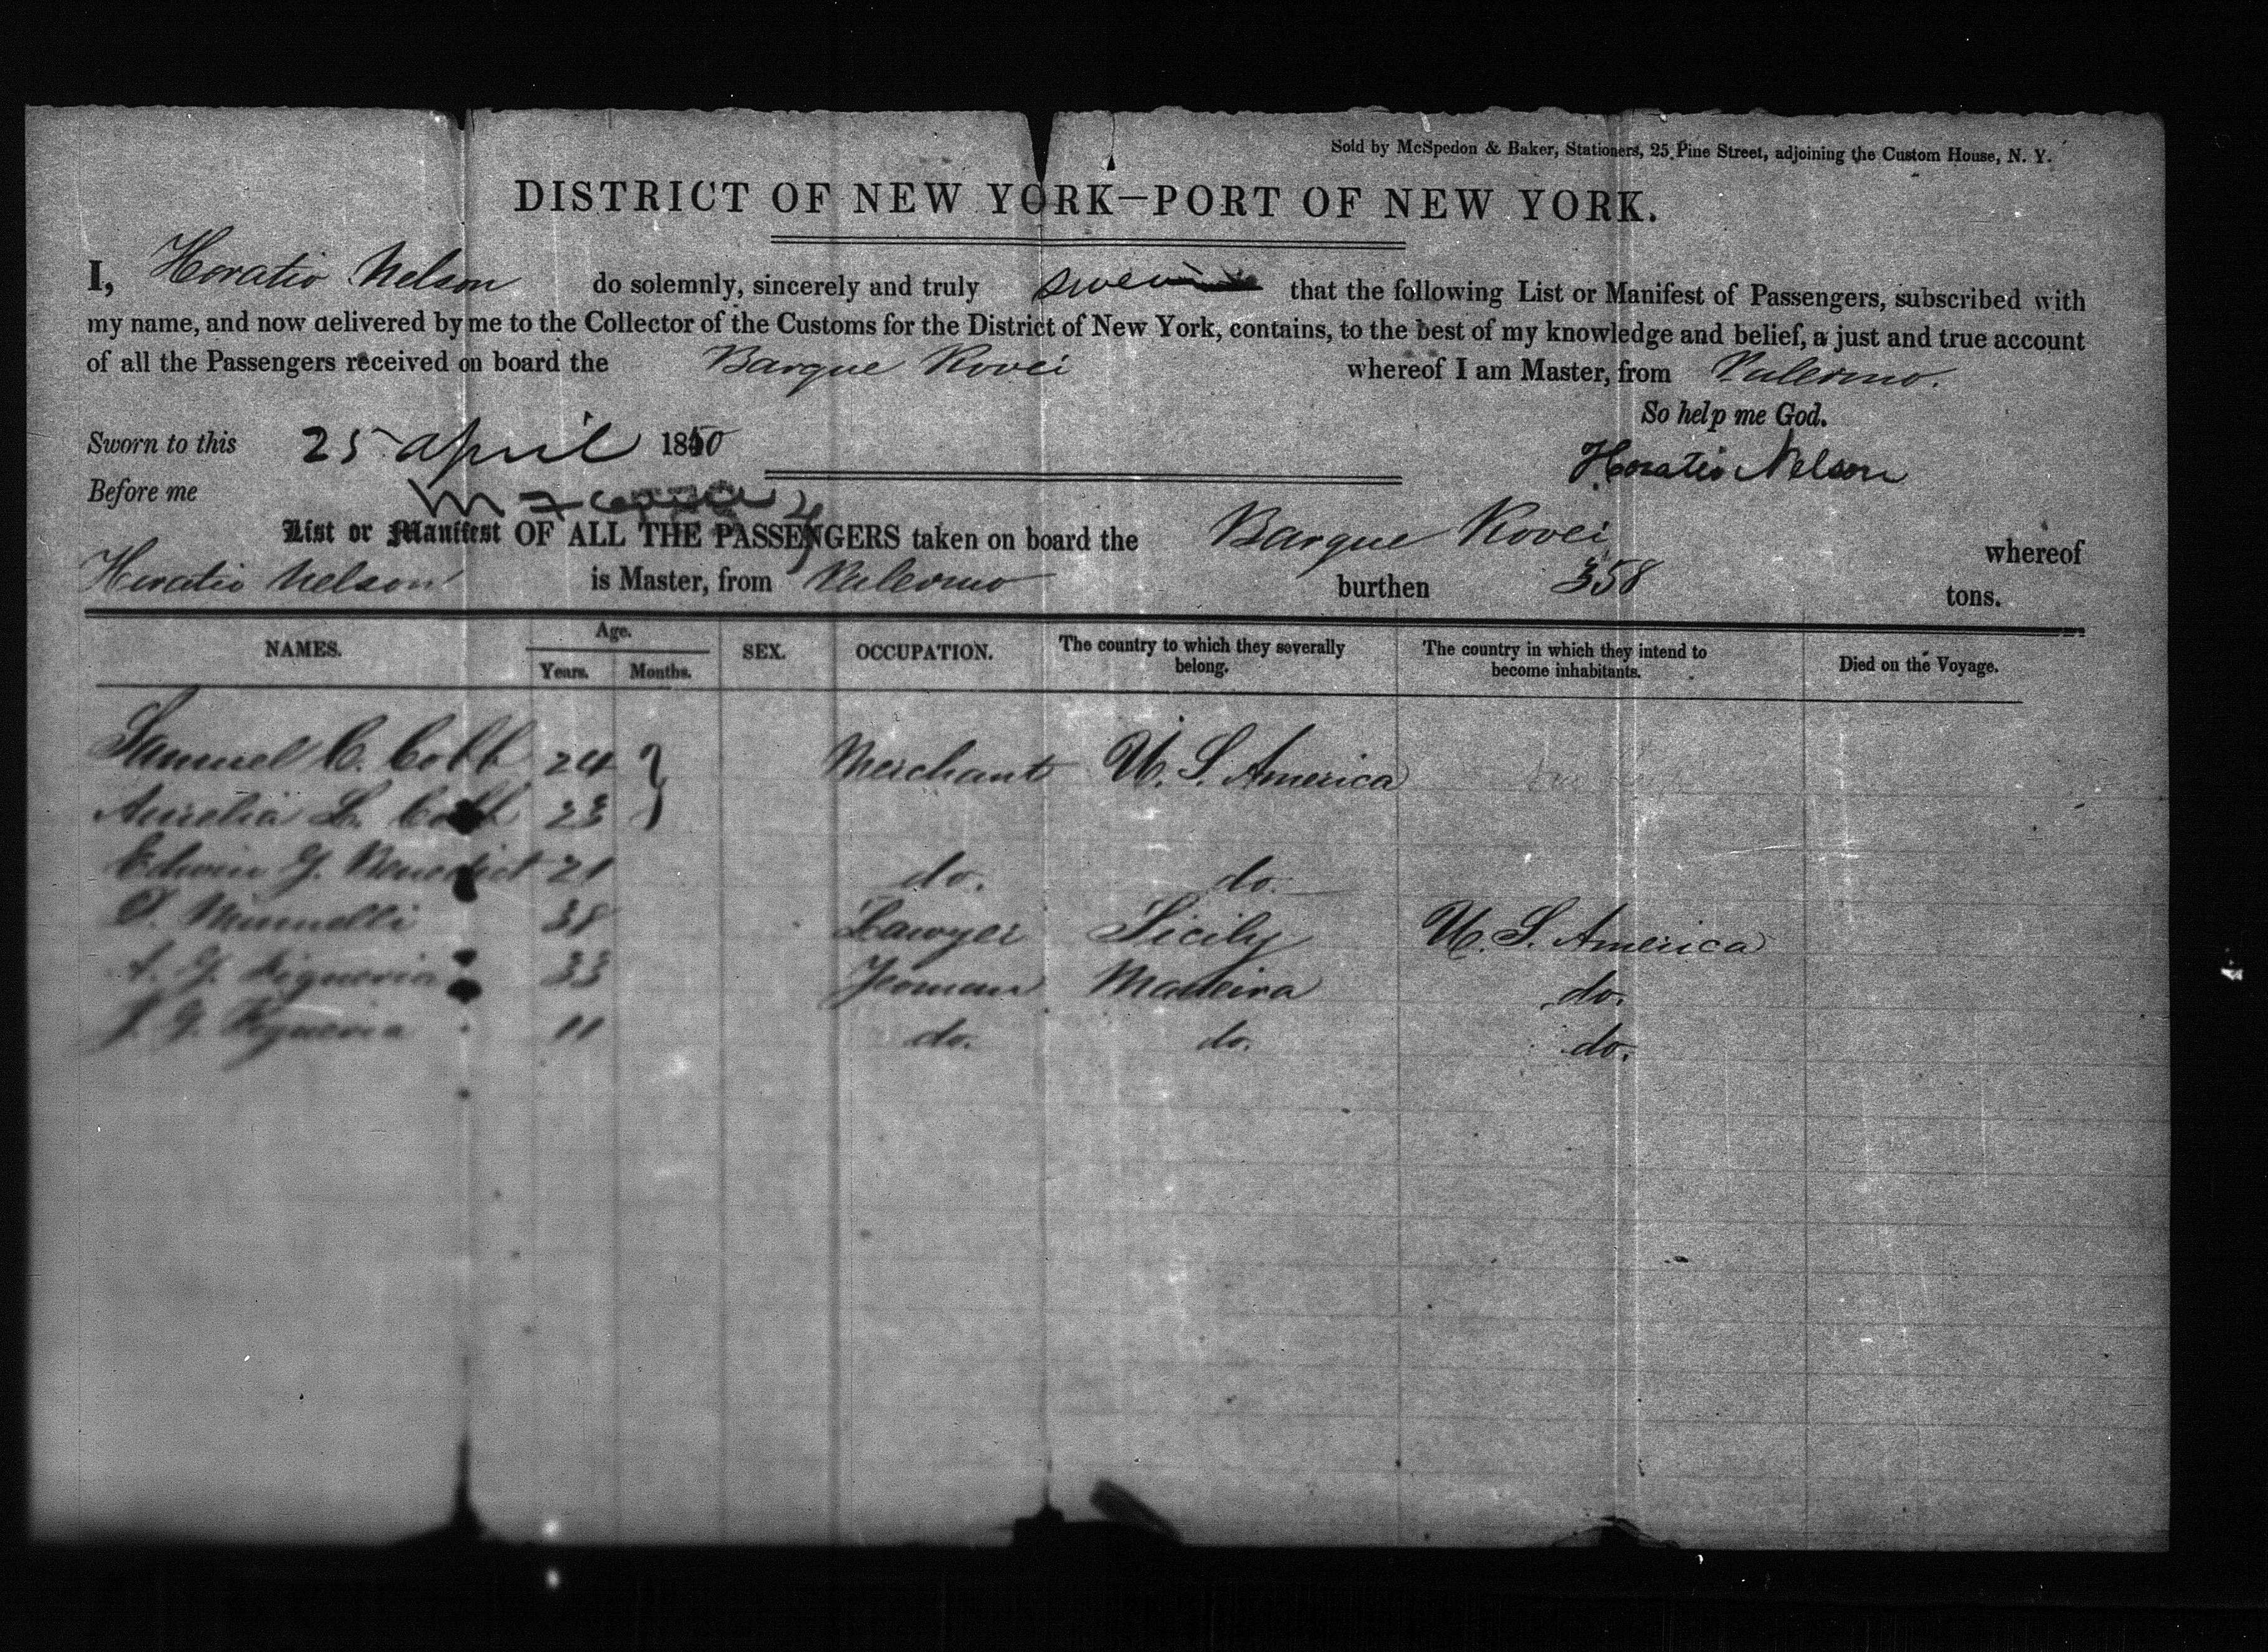 Sold by McSpedon & Baker, Stationers, 25 Pine Street, adjoining the Custom House, N. Y.
DISTRICT OF NEW YORK—PORT OF NEW YORK.
I, Horatio Nelson do solemnly, sincerely and truly swear that the following List or Manifest of Passengers, subscribed with
my name, and now delivered by me to the Collector of the Customs for the District of New York, contains, to the best of my knowledge and belief, a just and true account
of all the Passengers received on board the Barque Rovei whereof I am Master, from Palermo.
So help me God.
Sworn to this 25 april 1850
Horatio Nelson
Before me
List or Manifest OF ALL THE PASSENGERS taken on board the Barque Rovei whereof
Horatio Nelson is Master, from Palermo burthen 358 tons.
NAMES. Age. Years. Months. SEX. OCCUPATION. The country to which they severally belong. The country in which they intend to become inhabitants. Died on the Voyage.
Samuel C. Cobb 24 Merchant U. S. America
Aurelia L. Cobb 23
Edwin G. Benedict 21 do. do.
38 Lawyer Sicily U. S. America
33 Yeoman Madeira do.
11 do. do. do.